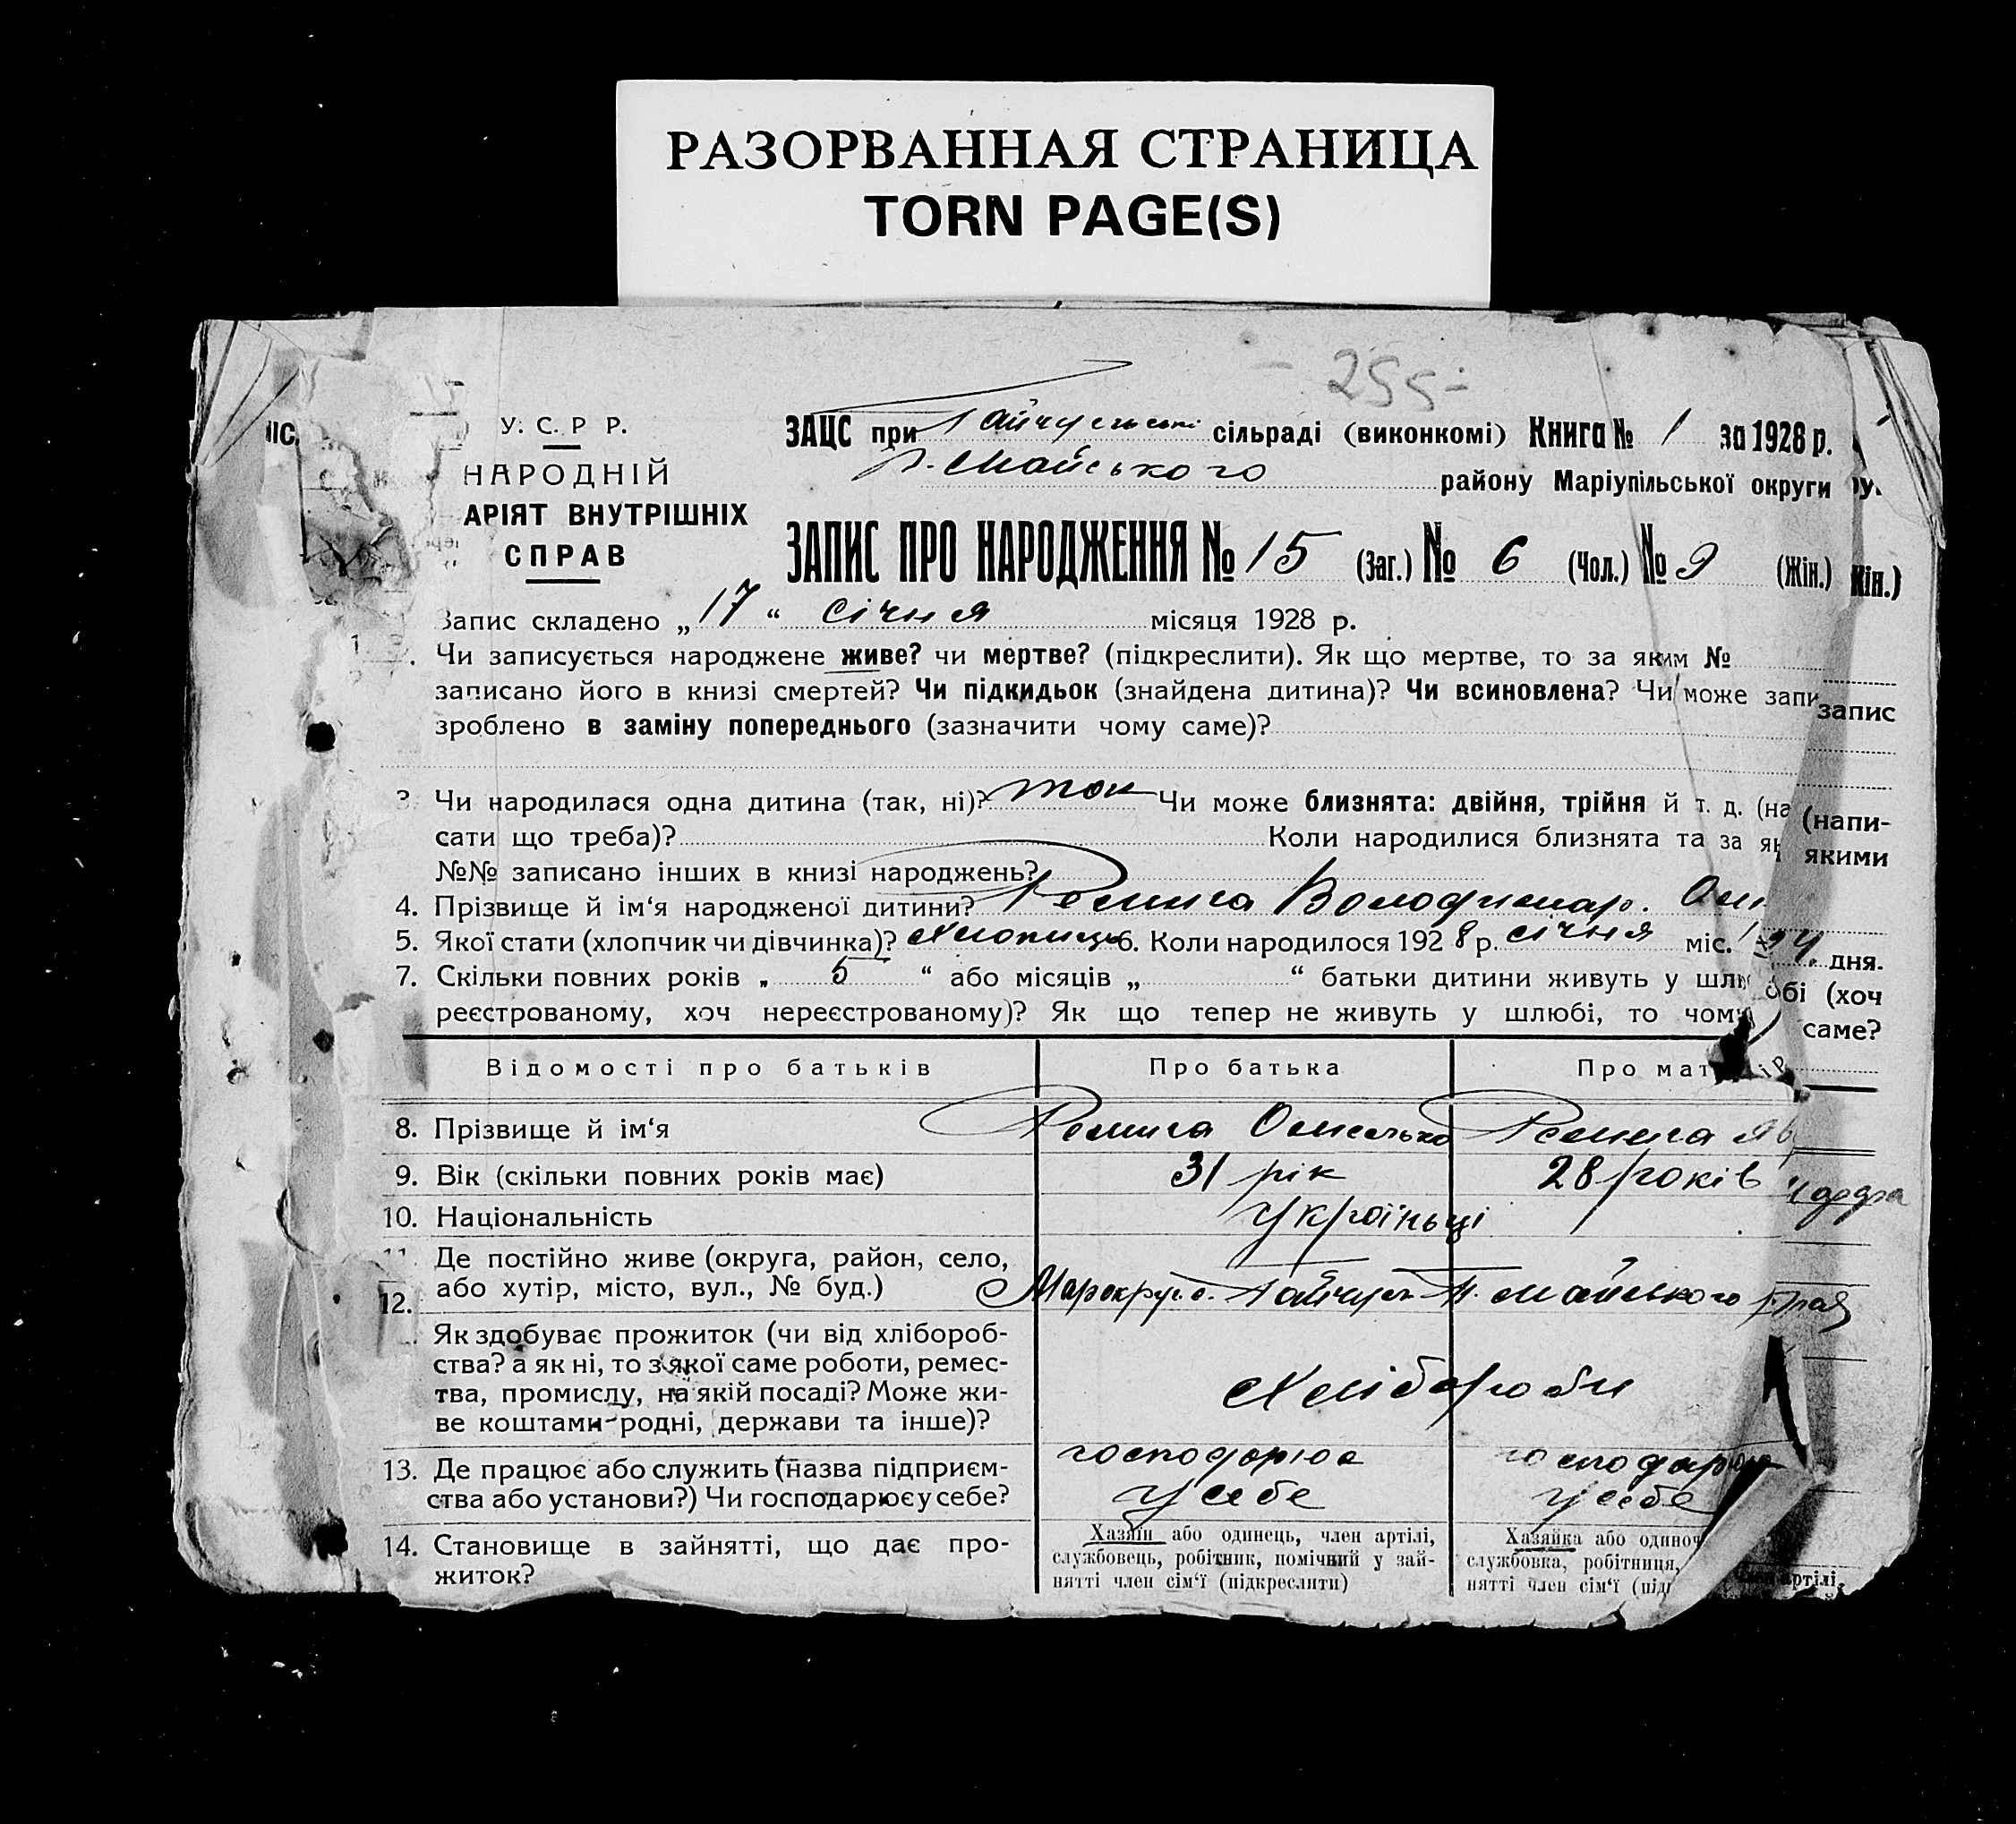 РАЗОРВАННАЯ СТРАНИЦА
TORN PAGE(S)
- 255 -
У. С. Р Р.
НАРОДНІЙ
АРІЯТ ВНУТРІШНІХ
СПРАВ
ЗАЦС при сільраді (виконкомі) Книга № 1 за 1928 р.
П. Майського району Маріупільської округи
ЗАПИС ПРО НАРОДЖЕННЯ № 15 (Заг.) № 6 (Чол.) № 9 (Жін.) Жін.)
Запис складено „ 17 “ січня місяця 1928 р.
Чи записується народжене живе? чи мертве? (підкреслити). Як що мертве, то за яким №
записано його в книзі смертей? Чи підкидьок (знайдена дитина)? Чи всиновлена? Чи може запи запис
зроблено в заміну попереднього (зазначити чому саме)?
3 Чи народилася одна дитина (так, ні)? так Чи може близнята: двійня, трійня й т. д. (на (напи-
сати що треба)? Коли народилися близнята та за як якими
№№ записано інших в книзі народжень?
4. Прізвище й ім‘я народженої дитини? Ремига Володимир. Ом
5. Якої стати (хлопчик чи дівчинка)? Хлопиць 6. Коли народилося 1928 р. січня міс. дня.
7. Скільки повних років „ 5 “ або місяців „ “ батьки дитини живуть у шлю обі (хоч
реєстрованому, хоч нереєстрованому)? Як що тепер не живуть у шлюбі, то чому саме?
Відомості про батьків Про батька Про матір
8. Прізвище й ім‘я Ремига Омелько Ремига Яв
9. Вік (скільки повних років має) 31 рік 28 років
10. Національність Україньці
Де постійно живе (округа, район, село,
або хутір, місто, вул., № буд.) Марокруг с. Гайчул П. Майського
12.
Як здобуває прожиток (чи від хлібороб-
ства? а як ні, то з якої саме роботи, ремес-
тва, промислу, на якій посаді? Може жи-
ве коштами родні, держави та інше)? Хлібороби
13. Де працює або служить (назва підприєм-
ства або установи?) Чи господарює у себе? господарює у себе господарює у себе
14. Становище в зайнятті, що дає про-
житок?
Хазяїн або одинець, член артілі,
службовець, робітник, помічний у зай-
нятті член сім‘ї (підкреслити)
Хазяйка або одиноч
службовка, робітниця,
нятті член сім‘ї (під
артілі,